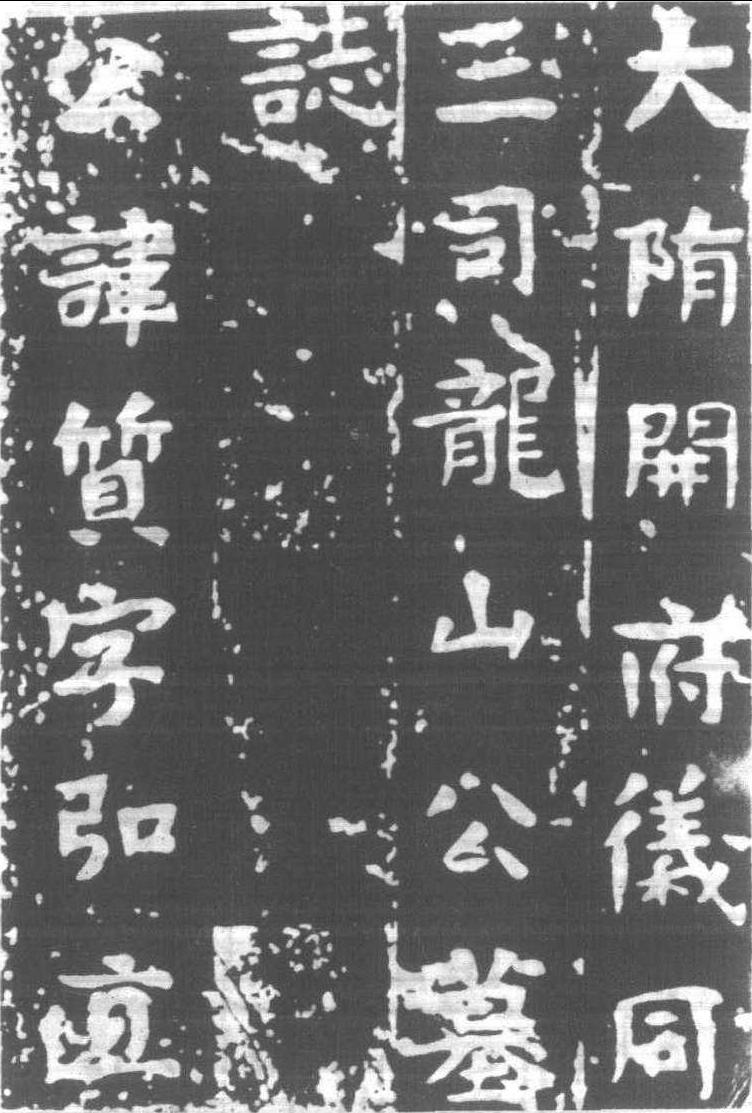 大陏開府儀同
三司龍山公墓
誌
諱質字弘直